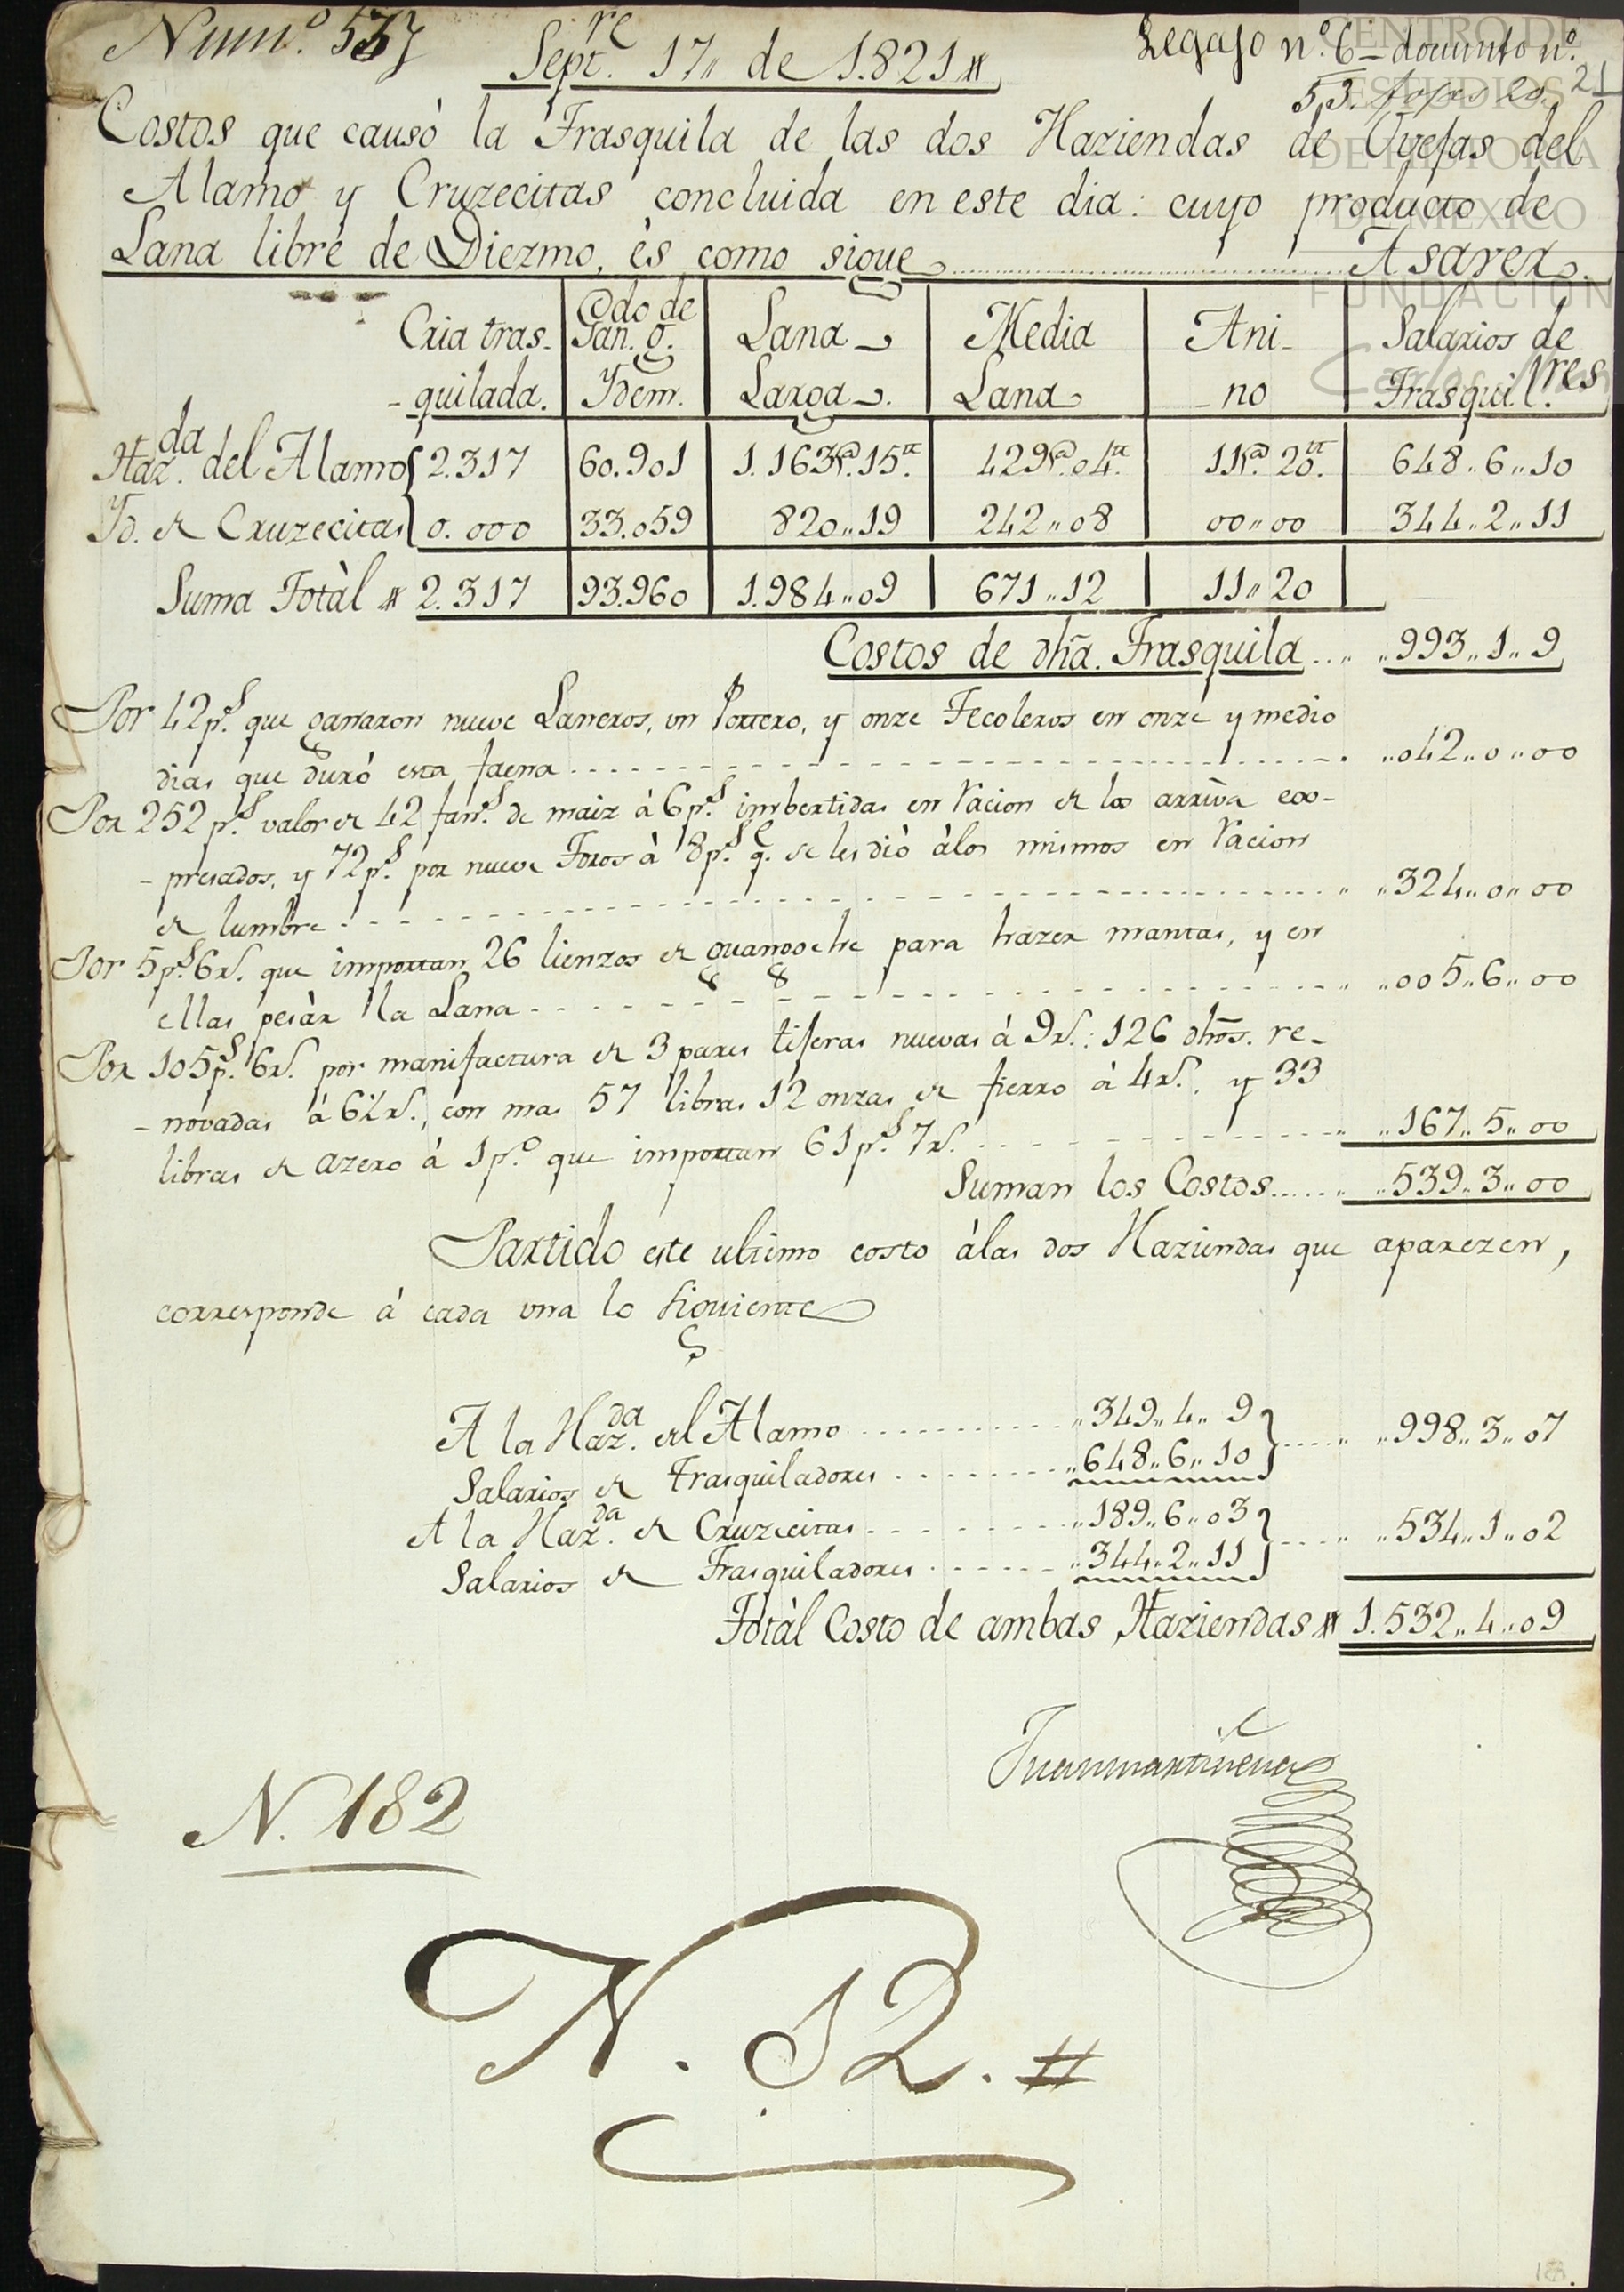 Num.º 537
Sept.re 17,, de 1.821
Legajo nº 6 – documto nº
53. fojas 20. 21
CENTRO DE
ESTUDIOS
DE HISTORIA
DE MEXICO
FUNDACIÓN
Costos que causó la Trasquila de las dos Haziendas de Ovejas del
Alamo y Cruzecitas concluida en este dia: cuyo producto de
Lana libre de Diezmo, és como sigue ........ A saver
Cria tras- Gdo de Lana Media Ani- Salarios de
- quilada. Ydem. Larga. Lana no Trasquil.res
Haz.da del Alamo 2.317 60.901 1.163@.15tt. 429@.04tt. 11@. 20tt. 648,, 6,, 10
Yd. de Cruzecitas 0.000 33.059 820,,19 242,,08 00,,00 344,, 2,, 11
Suma Totàl # 2.317 93.960 1.984,,09 671,,12 11,,20
Costos de dhã. Trasquila .. ,, 993,, 1,, 9
Por 42 p.s que ganaron nueve Laneros, un Portero, y onze Tecoleros en onze y medio
dias que duró esta faena ........ ,,042,,0,,00
Por 252 p.s valor de 42 fan.s de maiz à 6 p.s imbertidas en racion de los arriva ex-
- presados, y 72 p.s por nueve Toros à 8 p.s q.e se les dió àlos mismos en racion
de lumbre ........ ,,324,,0,,00
Por 5 p.s 6 r.s que importan 26 lienzos de guangoche para hazer mantas, y en
ellas pesàr la Lana ........ ,,005,,6,,00
Por 105 p.s 6 r.s por manifactura de 3 pares tiseras nuevas à 9 r.s: 126 dhõs. re-
- novadas à 6½ r.s, con mas 57 libras 12 onzas de fierro à 4 r.s, y 33
libras de azero à 1 p.º que importan 61 p.s 7 r.s ........ ,,167,,5,,00
Suman los Costos ...... ,,539,,3,,00
Partido este ultimo costo àlas dos Haziendas que aparezen,
corresponde à cada una lo siguiente
A la Haz.da del Alamo ........ ,,349,,4,,9
Salarios de Trasquiladores ........ ,,648,,6,,10 } ..... ,,998,,3,,07
A la Haz.da de Cruzecitas ........ ,,189,,6,,03
Salarios de Trasquiladores ...... ,,344,,2,,11 } .... ,,534,,1,,02
Totàl Costo de ambas Haziendas # 1.532,,4,,09
N. 182
N. 12. #